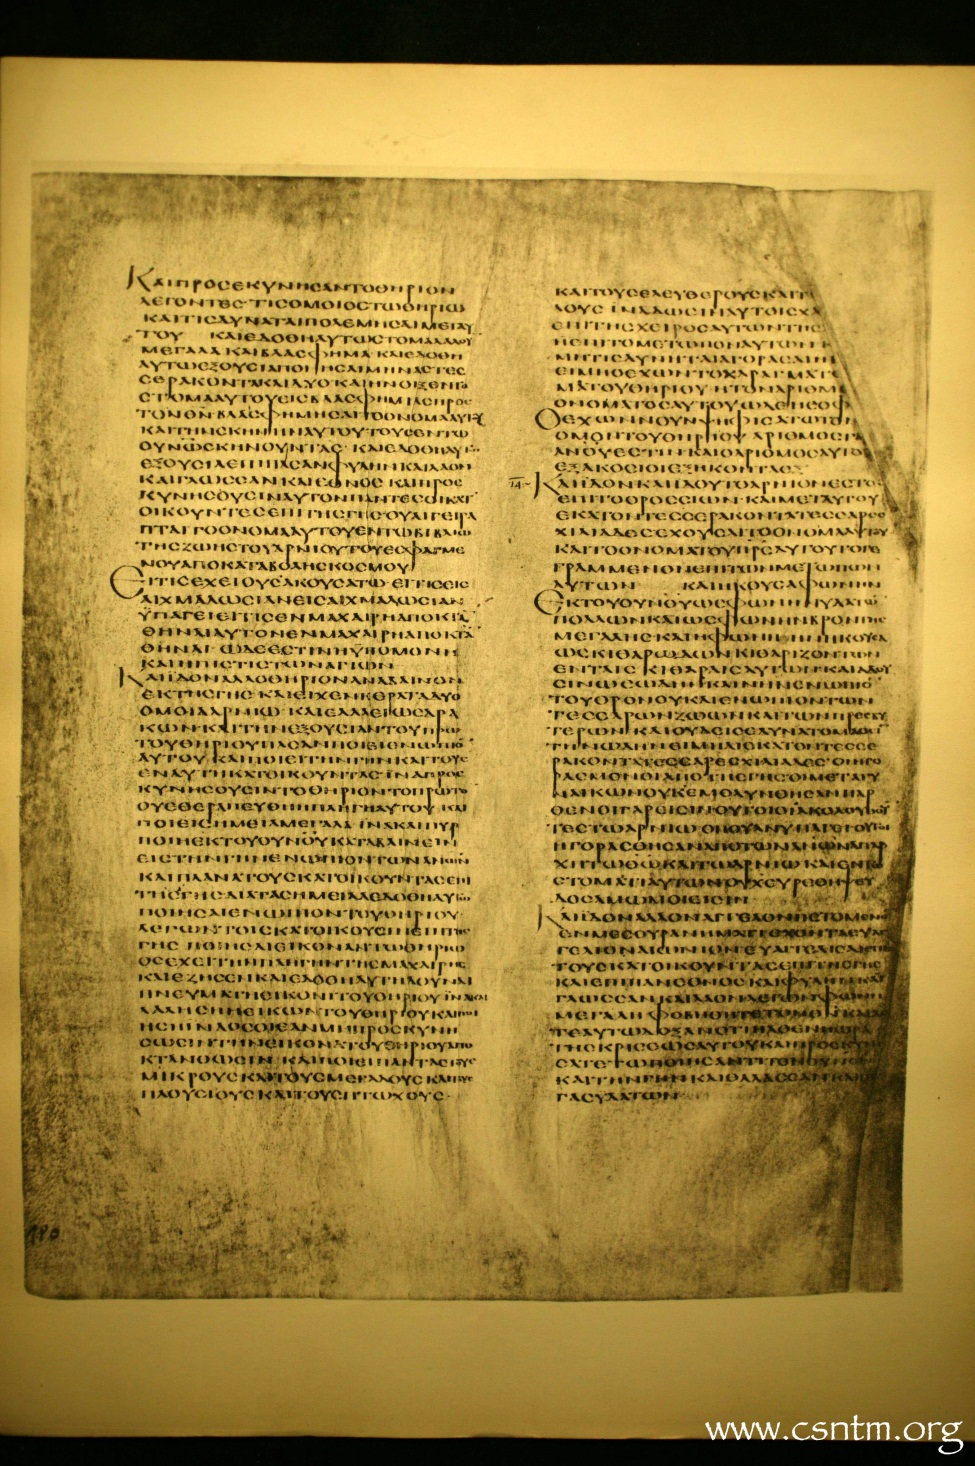 ΚΑΙΠΡΟCΕΚΥΝΗCΑΝΤΟΘΗΡΙΟΝ
ΛΕΓΟΝΤΕC·ΤΙCΟΜΟΙΟCΤΩΘΗΡΙΩ
ΚΑΙΤΙCΔΥΝΑΤΑΙΠΟΛΕΜΗCΑΙΜΕΤΑΥ
ΤΟΥ ΚΑΙΕΔΟΘΗΑΥΤΩCΤΟΜΑΛΑΛΟΥ
ΜΕΓΑΛΑ ΚΑΙΒΛΑCΦΗΜΑ ΚΑΙΕΔΟΘΗ
ΑΥΤΩΕΞΟΥCΙΑΠΟΙΗCΑΙΜΗΝΑCΤΕC
CΕΡΑΚΟΝΤΑΚΑΙΔΥΟ ΚΑΙΗΝΟΙΞΕΝΤΟ
CΤΟΜΑΑΥΤΟΥΕΙCΒΛΑCΦΗΜΙΑCΠΡΟC
ΤΟΝΘΝ ΒΛΑCΦΗΜΗCΑΙΤΟΟΝΟΜΑΑΥΤΟΥ
ΚΑΙΤΗΝCΚΗΝΗΝΑΥΤΟΥΤΟΥCΕΝΤΩ
ΟΥΝΩCΚΗΝΟΥΝΤΑC· ΚΑΙΕΔΟΘΗΑΥΤΩ
ΕΞΟΥCΙΑΕΠΙΠΑCΑΝΦΥΛΗΝ ΚΑΙΛΑΟΝ
ΚΑΙΓΛΩCCΑΝ ΚΑΙΕΘΝΟC ΚΑΙΠΡΟC
ΚΥΝΗCΟΥCΙΝΑΥΤΟΝΠΑΝΤΕCΟΙΚΑΤ
ΟΙΚΟΥΝΤΕCΕΠΙΤΗCΓΗC ΟΥΑΙΓΕΓΡΑ
ΠΤΑΙΤΟΟΝΟΜΑΑΥΤΟΥΕΝΤΩΒΙΒΛΙΩ
ΤΗCΖΩΗCΤΟΥΑΡΝΙΟΥΤΟΥΕCΦΑΓΜΕ
ΝΟΥΑΠΟΚΑΤΑΒΟΛΗCΚΟCΜΟΥ
ΕΙΤΙCΕΧΕΙΟΥCΑΚΟΥCΑΤΩ·ΕΙΤΙCΕΙC
ΑΙΧΜΑΛΩCΙΑΝΕΙCΑΙΧΜΑΛΩCΙΑΝ
ΥΠΑΓΕΙΕΙΤΙCΕΝΜΑΧΑΙΡΗΑΠΟΚΤΑ
ΘΗΝΑΙΑΥΤΟΝΕΝΜΑΧΑΙΡΗΑΠΟΚΤΑ
ΘΗΝΑΙ· ΩΔΕΕCΤΙΝΗΥΠΟΜΟΝΗ
ΚΑΙΗΠΙCΤΙCΤΩΝΑΓΙΩΝ
ΚΑΙΙΔΟΝΑΛΛΟΘΗΡΙΟΝΑΝΑΒΑΙΝΟΝ
ΕΚΤΗCΓΗC ΚΑΙΕΙΧΕΝΚΕΡΑΤΑΔΥΟ
ΟΜΟΙΑΑΡΝΙΩ· ΚΑΙΕΛΑΛΕΙΩCΔΡΑ
ΚΩΝ·ΚΑΙΤΗΝΕΞΟΥCΙΑΝΤΟΥΠΡΩ
ΤΟΥΘΗΡΙΟΥΠΑCΑΝΠΟΙΕΙΕΝΩΠΙΟ
ΑΥΤΟΥ· ΚΑΙΠΟΙΕΙΤΗΝΓΗΝΚΑΙΤΟΥC
ΕΝΑΥΤΗΚΑΤΟΙΚΟΥΝΤΑC·ΙΝΑΠΡΟC
ΚΥΝΗCΟΥCΙΝΤΟΘΗΡΙΟΝΤΟΠΡΩΤΟ
ΟΥΕΘΕΡΑΠΕΥΘΗΗΠΛΗΓΗΑΥΤΟΥ ΚΑΙ
ΠΟΙΕΙCΗΜΕΙΑΜΕΓΑΛΑ ΙΝΑΚΑΙΠΥΡ
ΠΟΙΗΕΚΤΟΥΟΥΝΟΥΚΑΤΑΒΑΙΝΕΙΝ
ΕΙCΤΗΝΓΗΝΕΝΩΠΙΟΝΤΩΝΑΝΩΝ
ΚΑΙΠΛΑΝΑΤΟΥCΚΑΤΟΙΚΟΥΝΤΑCΕΠΙ
ΤΗCΓΗCΔΙΑΤΑCΗΜΕΙΑΑΕΔΟΘΗΑΥΤΩ
ΠΟΙΗCΑΙΕΝΩΠΙΟΝΤΟΥΘΗΡΙΟΥ·
ΛΕΓΩΝΤΟΙCΚΑΤΟΙΚΟΥCΙΝΕΠΙΤΗC
ΓΗC ΠΟΙΗCΑΙΕΙΚΟΝΑΤΩΘΗΡΙΩ
ΟCΕΧΕΙΤΗΝΠΛΗΓΗΝΤΗCΜΑΧΑΙΡΗC
ΚΑΙΕΖΗCΕΝ ΚΑΙΕΔΟΘΗΑΥΤΗΔΟΥΝΑΙ
ΠΝΕΥΜΑΤΗΕΙΚΟΝΙΤΟΥΘΗΡΙΟΥ ΙΝΑΚΑΙ
ΛΑΛΗCΗΗΕΙΚΩΝΤΟΥΘΗΡΙΟΥΚΑΙΠΟΙ
ΗCΗΙΝΑΟCΟΙΕΑΝΜΗΠΡΟCΚΥΝΗ
CΩCΙΝΤΗΝΕΙΚΟΝΑΤΟΥΘΗΡΙΟΥΑΠΟ
ΚΤΑΝΘΩCΙΝ· ΚΑΙΠΟΙΕΙΠΑΝΤΑCΤΟΥC
ΜΙΚΡΟΥCΚΑΙΤΟΥCΜΕΓΑΛΟΥCΚΑΙΤΟΥC
ΠΛΟΥCΙΟΥCΚΑΙΤΟΥCΠΤΩΧΟΥC·
ΚΑΙΤΟΥCΕΛΕΥΘΕΡΟΥCΚΑΙΤ
ΛΟΥC ΙΝΑΔΩCΙΝΑΥΤΟΙCΧΑ
ΕΠΙΤΗCΧΕΙΡΟCΑΥΤΩΝΤΗC
ΗΕΠΙΤΟΜΕΤΩΠΟΝΑΥΤΩΝ Κ
ΜΗΤΙCΔΥΝΗΤΑΙΑΓΟΡΑCΑΙΗ
ΕΙΜΗΟΕΧΩΝΤΟΧΑΡΑΓΜΑΤ
ΜΑΤΟΥΘΗΡΙΟΥ ΗΤΟΝΑΡΙΘΜ
ΟΝΟΜΑΤΟCΑΥΤΟΥΩΔΕΗCΟΦ
ΟΕΧΩΝΝΟΥΝΨΗΦΙCΑΤΩΤΟΝ
ΘΜΟΝΤΟΥΘΗΡΙΟΥ ΑΡΙΘΜΟCΓΑ
ΑΝΟΥΕCΤΙΝΚΑΙΟΑΡΙΘΜΟCΑΥΤΟ
ΕΞΑΚΟCΙΟΙΕΞΗΚΟΝΤΑΕΞ
14 ΚΑΙΙΔΟΝΚΑΙΙΔΟΥΤΟΑΡΝΙΟΝΕCΤΟ
ΕΠΙΤΟΟΡΟCCΙΩΝ· ΚΑΙΜΕΤΑΥΤΟΥ
ΕΚΑΤΟΝΤΕCCΕΡΑΚΟΝΤΑΤΕCCΑΡΕC
ΧΙΛΙΑΔΕCΕΧΟΥCΑΙΤΟΟΝΟΜΑΑΥΤΟΥ
ΚΑΙΤΟΟΝΟΜΑΤΟΥΠΡCΑΥΤΟΥΤΟΓΕ
ΓΡΑΜΜΕΝΟΝΕΠΙΤΩΝΜΕΤΩΠΩΝ
ΑΥΤΩΝ ΚΑΙΗΚΟΥCΑΦΩΝΗΝ
ΕΚΤΟΥΟΥΝΟΥΩCΦΩΝΗΝΥΔΑΤΩ
ΠΟΛΛΩΝΚΑΙΩCΦΩΝΗΝΒΡΟΝΤΗC
ΜΕΓΑΛΗCΚΑΙΗΦΩΝΗΗΝΗΚΟΥCΑ
ΩCΚΙΘΑΡΩΔΩΝΚΙΘΑΡΙΖΟΝΤΩΝ
ΕΝΤΑΙCΚΙΘΑΡΑΙCΑΥΤΩΝΚΑΙΑΔΟΥ
CΙΝΩCΩΔΗΝΚΑΙΝΗΝΕΝΩΠΙΟ
ΤΟΥΘΡΟΝΟΥΚΑΙΕΝΩΠΙΟΝΤΩΝ
ΤΕCCΑΡΩΝΖΩΩΝΚΑΙΤΩΝΠΡΕCΒΥ
ΤΕΡΩΝ ΚΑΙΟΥΔΙCΕΔΥΝΑΤΟΜΑΘΙ
ΤΗΝΩΔΗΝΕΙΜΗΑΙΕΚΑΤΟΝΤΕCCΕ
ΡΑΚΟΝΤΑΤΕCCΑΡΕCΧΙΛΙΑΔΕC·ΟΙΗΓΟ
ΡΑCΜΕΝΟΙΑΠΟΤΗCΓΗCΟΙΜΕΤΑΓΥ
ΝΑΙΚΩΝΟΥΚΕΜΟΛΥΝΘΗCΑΝΠΑΡ
ΘΕΝΟΙΓΑΡΕΙCΙΝΟΥΤΟΙΟΙΑΚΟΛΟΥΘΟΥ
ΤΕCΤΩΑΡΝΙΩΟΠΟΥΑΝΥΠΑΓΗΟΥΤΟΙ
ΗΓΟΡΑCΘΗCΑΝΑΠΟΤΩΝΑΝΩΝΑΠΑΡ
ΧΗΤΩΘΩΚΑΙΤΩΑΡΝΙΩ ΚΑΙΕΝΤΩ
CΤΟΜΑΤΙΑΥΤΩΝΟΥΧΕΥΡΕΘΗΨΕΥ
ΔΟCΑΜΩΜΟΙΕΙCΙΝ
ΚΑΙΙΔΟΝΑΛΛΟΝΑΓΓΕΛΟΝΠΕΤΟΜΕΝΟ
ΕΝΜΕCΟΥΡΑΝΗΜΑΤΙΕΧΟΝΤΑΕΥΑΓ
ΓΕΛΙΟΝΑΙΩΝΙΟΝΕΥΑΓΓΕΛΙCΑΙ
ΤΟΥCΚΑΤΟΙΚΟΥΝΤΑCΕΠΙΤΗCΓΗC
ΚΑΙΕΠΙΠΑΝΕΘΝΟCΚΑΙΦΥΛΗΝΚΑΙ
ΓΛΩCCΑΝΚΑΙΛΑΟΝΛΕΓΩΝΦΩΝΗ
ΜΕΓΑΛΗ ΦΟΒΗΘΗΤΕΤΟΝ ΚΑΙΔΟ
ΤΕΑΥΤΩΔΟΞΑΝΟΤΙΗΛΘΕΝΗΩΡΑ
ΤΗCΚΡΙCΕΩCΑΥΤΟΥΚΑΙΠΡΟCΚΥΝ
ΤΩΠΟΙΗCΑΝΤΙΤΟΝΟΥΝΟΝ
ΚΑΙΤΗΝΓΗΝ ΚΑΙΘΑΛΑCCΑΝΚΑΙ
ΓΑCΥΔΑΤΩΝ
180
www.csntm.org